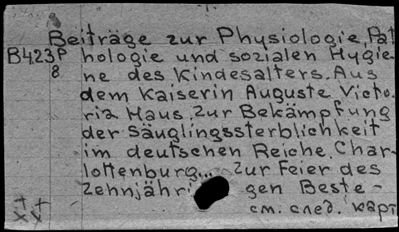 Beiträge zur Physiologie, Pat
B423P hologie und sozialen Hygie
8 ne des Kindesalters. Aus
dem Kaiserin Auguste Victo.
ria Haus zur Bekämpfung
der Säuglingssterblichkeit
im deutschen Reiche. Char-
lottenburg... Zur Feier des
zehnjähri gen Beste-
см. след. карт